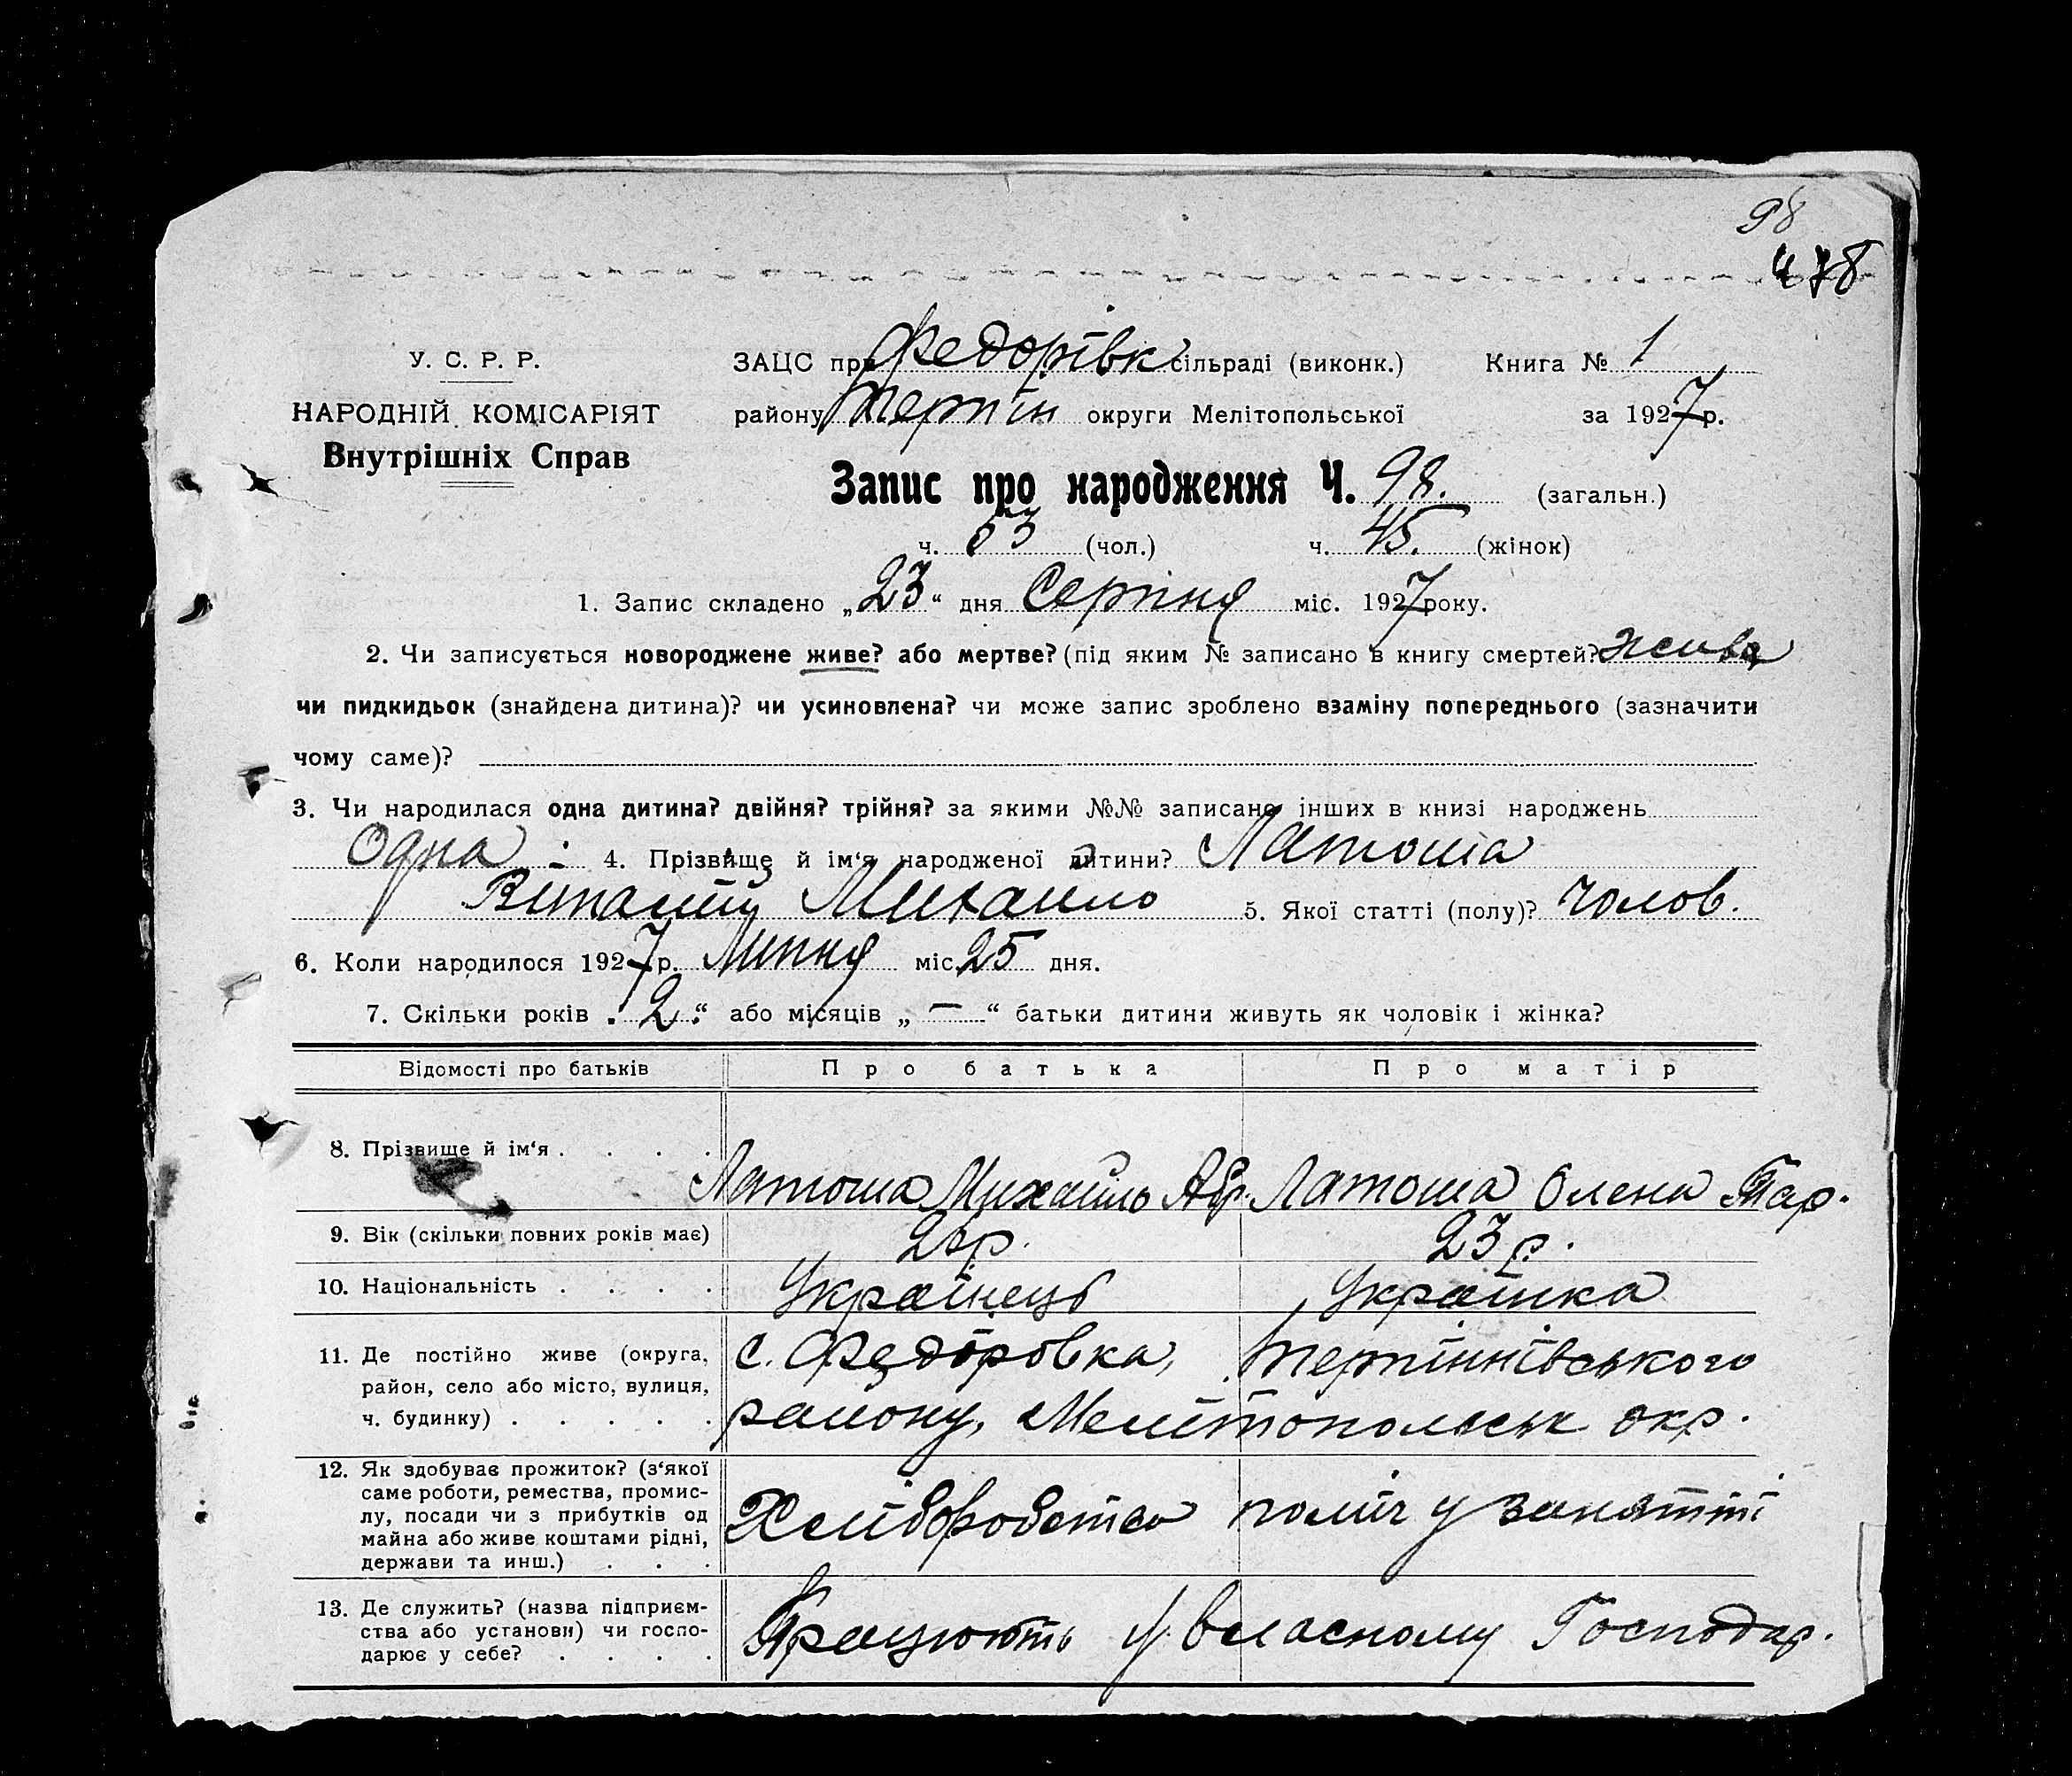 98
478
У. С. Р. Р.
НАРОДНІЙ КОМІСАРІЯТ
Внутрішніх Справ
ЗАЦС при Федорівк сільраді (виконк.) Книга № 1
району Терпін округи Мелітопольської за 1927 р.
Запис про народження Ч. 98. (загальн.)
ч. 53 (чол.) ч. 45. (жінок)
1. Запис складено „23“ дня Серпня міс. 1927 року.
2. Чи записується новороджене живе? або мертве? (під яким № записано в книгу смертей? жива
чи пидкидьок (знайдена дитина)? чи усиновлена? чи може запис зроблено взаміну попереднього (зазначити
чому саме)?
3. Чи народилася одна дитина? двійня? трійня? за якими №№ записано інших в книзі народжень
Одна 4. Прізвище й ім‘я народженої дитини? Латоша
Віталій Михаило 5. Якої статті (полу)? Чолов.
6. Коли народилося 1927 р. Липня міс. 25 дня.
7. Скільки років „2“ або місяців „—“ батьки дитини живуть як чоловік і жінка?
Відомості про батьків Про батька Про матір
8. Прізвище й ім‘я . . . . Латоша Михайло Авр. Латоша Олена Тар.
9. Вік (скільки повних років має) р. 23 р.
10. Національність . . . . Українець Українка
11. Де постійно живе (округа, район, село або місто, вулиця, ч. будинку) . . . . . с. Федоровка, Терпіннівського
району, Мелітопольськ окр.
12. Як здобуває прожиток? (з‘якої
саме роботи, ремества, промис-
лу, посади чи з прибутків од
майна або живе коштами рідні,
держави та инш.) . . . Хліборобство поміч у занятті
13. Де служить? (назва підприєм-
ства або установи) чи госпо-
дарює у себе? . . . . Працюють у власному Господар.